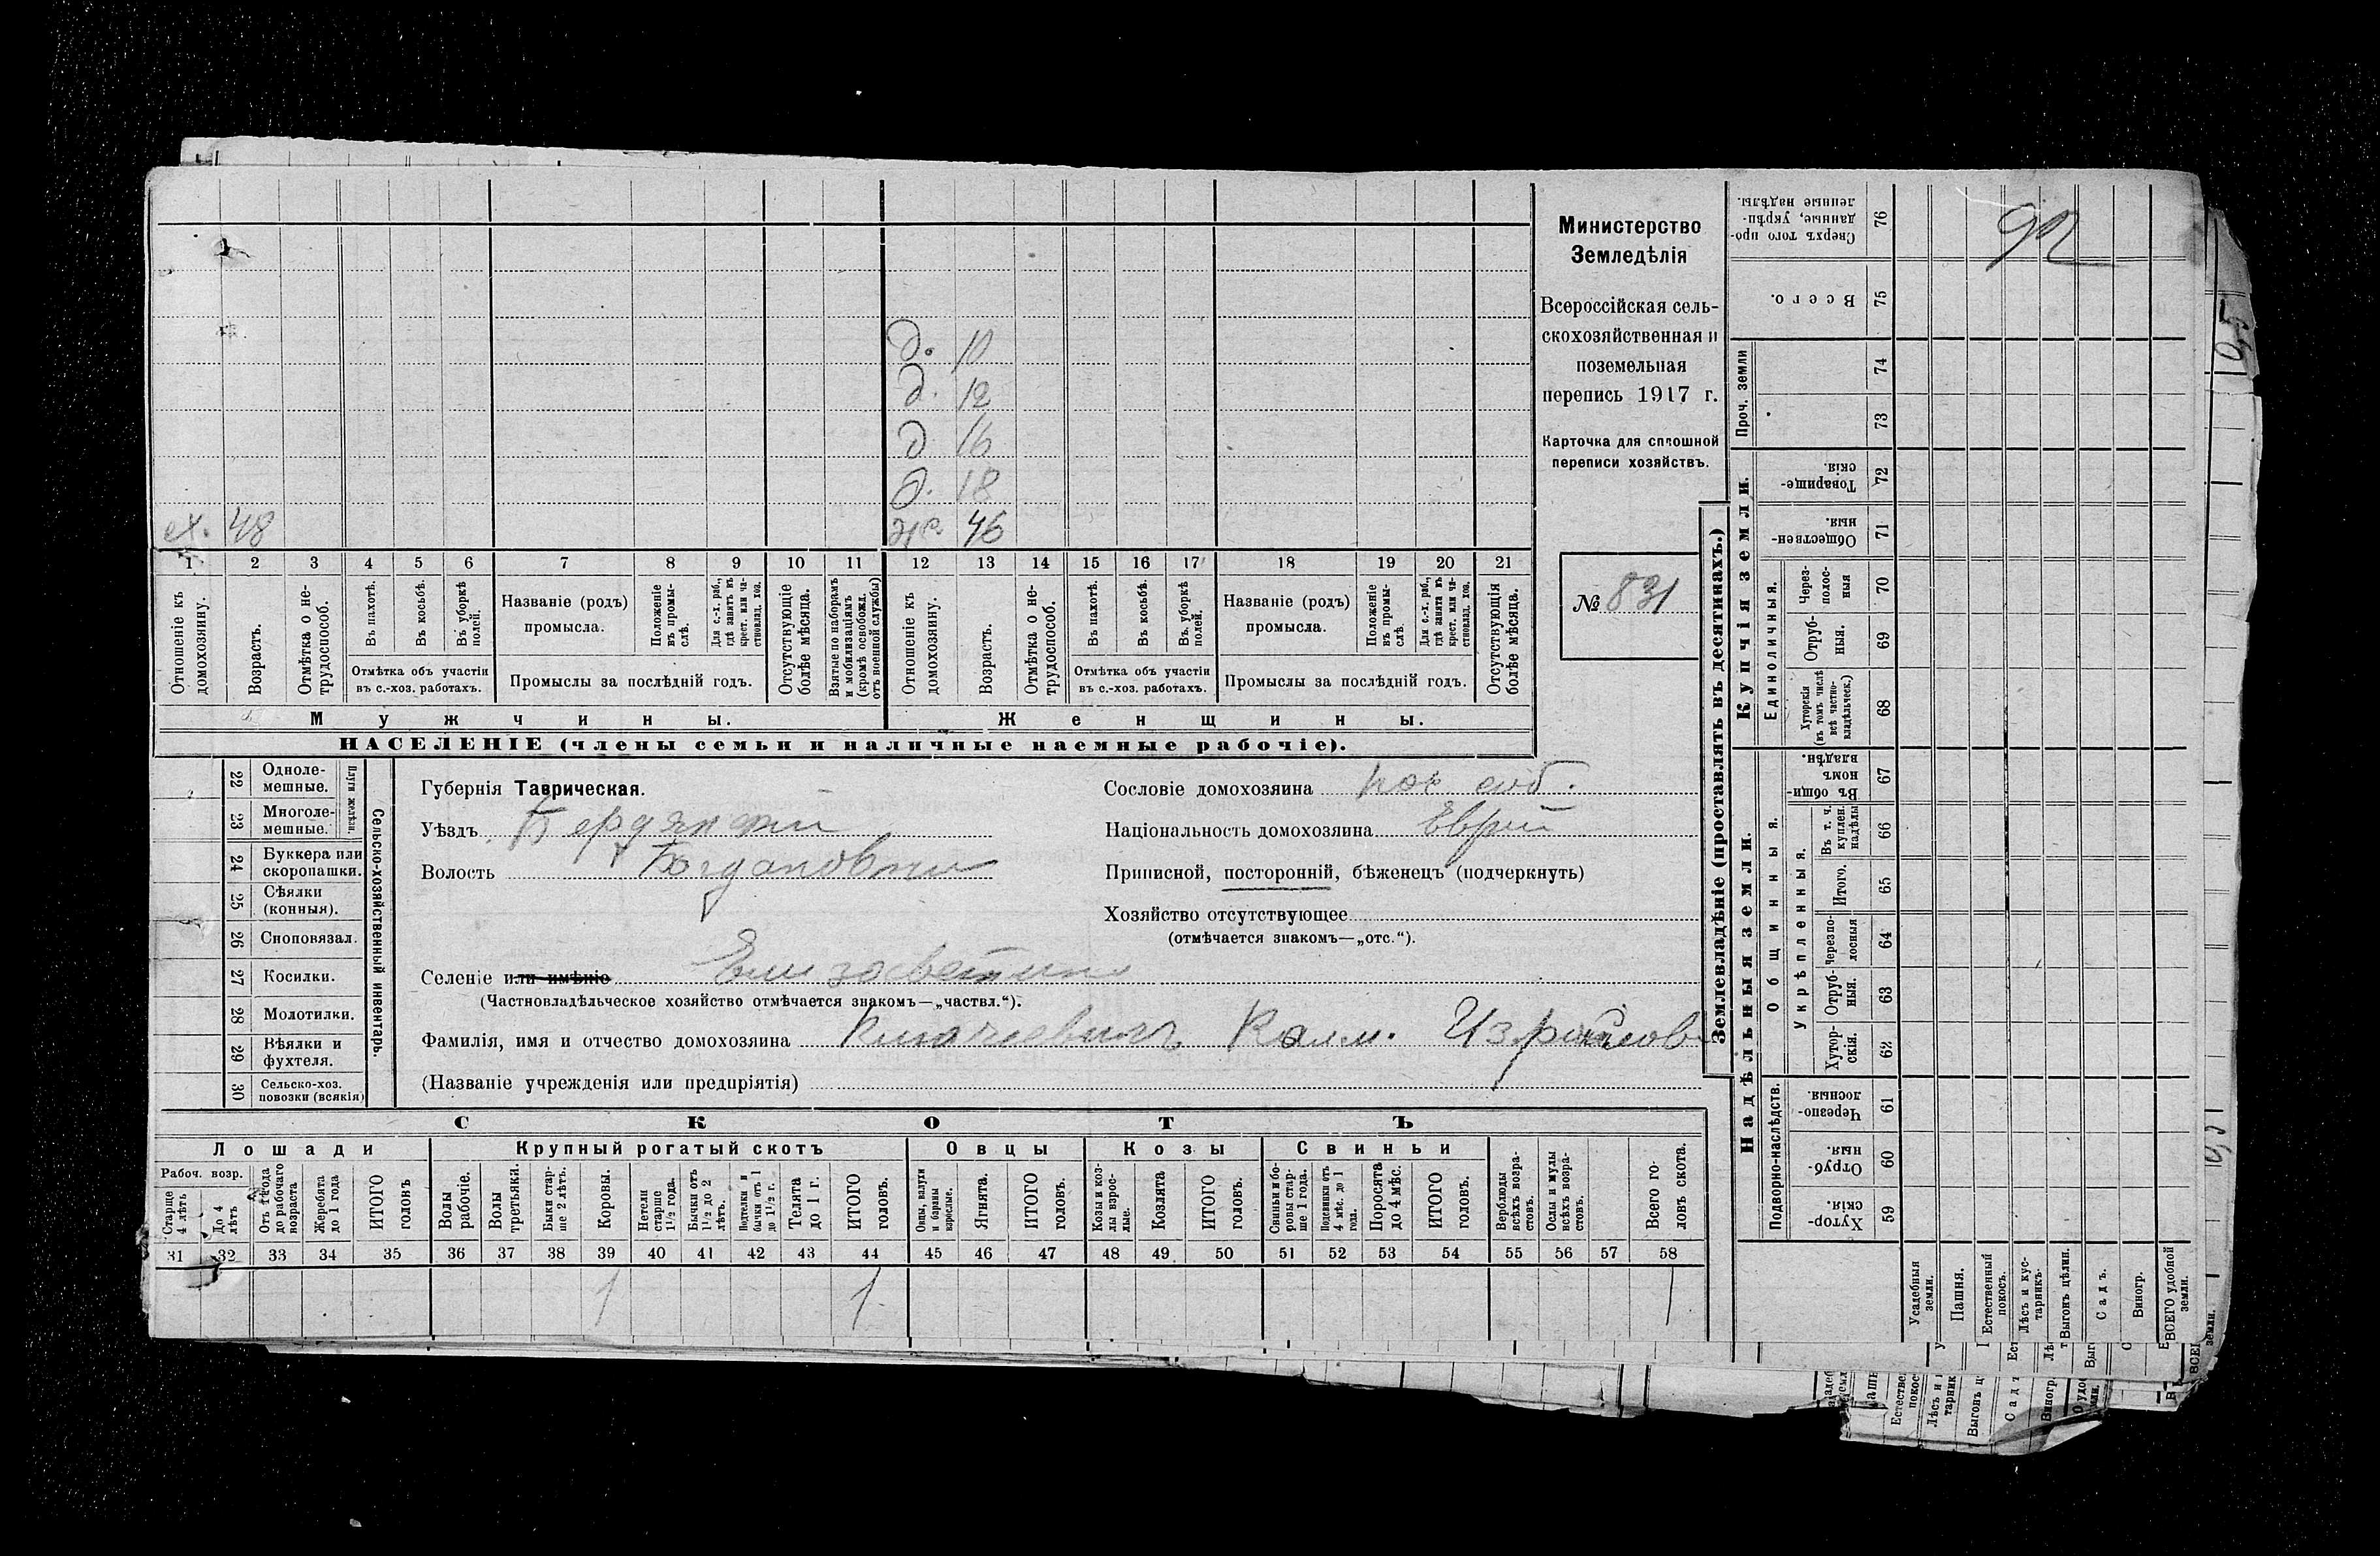 Министерство
Земледѣлія
Всероссійская сель-
скохозяйственная и
поземельная
перепись 1917 г.
Карточка для сплошной
переписи хозяйствъ.
№ 831
92
д. 10
д. 12
д 16
д. 18
х. 48
ж. 46
1 2 3 4 5 6 7 8 9 10 11 12 13 14 15 16 17 18 19 20 21
Отношеніе къ домохозяину.
Возрастъ.
Отмѣтка о не-трудоспособ.
Въ пахотѣ.
Въ косьбѣ.
Въ уборкѣ полей.
Отмѣтка объ участіи
въ с.-хоз. работахъ.
Названіе (родъ)
промысла.
Положеніе въ промы-слѣ.
Для с.-х. раб., гдѣ занятъ въ крест. или ча-ствовлад. хоз.
Промыслы за послѣдній годъ.
Отсутствующіе болѣе мѣсяца.
Взятые по наборамъ и мобилизаціямъ (кромѣ освобожд. отъ военной службы)
Отношеніе къ домохозяину.
Возрастъ.
Отмѣтка о не-трудоспособ.
Въ пахотѣ.
Въ косьбѣ.
Въ уборкѣ полей.
Отмѣтка объ участіи
въ с.-хоз. работахъ.
Названіе (родъ)
промысла.
Положеніе въ промы-слѣ.
Для с.-х. раб., гдѣ занята въ крест. или ча-ствовлад. хоз.
Промыслы за послѣдній годъ.
Отсутствующія болѣе мѣсяца.
Мужчины.
Женщины.
НАСЕЛЕНІЕ (члены семьи и наличные наемные рабочіе).
22 Одноле-мешные.
23 Многоле-мешные.
Плуги желѣзн.
24 Буккера или скоропашки.
25 Сѣялки (конныя).
26 Сноповязал.
27 Косилки.
28 Молотилки.
29 Вѣялки и фухтеля.
30 Сельско-хоз. повозки (всякія)
Сельско-хозяйственный инвентарь.
Губернія Таврическая.
Уѣздъ Бердянский
Волость Богдановки
Селеніе или имѣніе Елизаветино
(Частновладѣльческое хозяйство отмѣчается знакомъ—„частвл.“).
Сословіе домохозяина
Національность домохозяина Еврей
Приписной, посторонній, бѣженецъ (подчеркнуть)
Хозяйство отсутствующее
(отмѣчается знакомъ—„отс.“).
Фамилія, имя и отчество домохозяина Калм. Израйлов
(Названіе учрежденія или предпріятія)
СКОТЪ
Лошади
Крупный рогатый скотъ
Овцы
Козы
Свиньи
Рабоч. возр.
Старше 4 лѣтъ
До 4 лѣтъ
Отъ 1 года до рабочаго возраста
Жеребята до 1 года
ИТОГО головъ
Волы рабочіе.
Волы третьяки.
Быки стар-ше 2 лѣтъ.
Коровы.
Нетели старше 1½ года.
Бычки отъ 1½ до 2 лѣтъ.
Подтелки и бычки отъ 1 до 1½ г.
Телята до 1 г.
ИТОГО головъ.
Овцы, валухи и бараны взрослые.
Ягнята.
ИТОГО головъ.
Козы и коз-лы взрос-лые.
Козлята
ИТОГО головъ.
Свиньи и бо-ровы стар-ше 1 года.
Подсвинки отъ 4 мѣс. до 1 года.
Поросята до 4 мѣс.
ИТОГО головъ.
Верблюды всѣхъ возра-стовъ.
Ослы и мулы всѣхъ возра-стовъ.
Всего го-ловъ скота.
31 32 33 34 35 36 37 38 39 40 41 42 43 44 45 46 47 48 49 50 51 52 53 54 55 56 57 58
1 1 1
Землевладѣніе (проставлять въ десятинахъ.)
Купчія земли.
Надѣльныя земли.
Сверхъ того про-данные, укрѣп-ленные надѣлы. 76
Всего. 75
Проч. земли
74
73
Товарище-скія. 72
Обществен-ныя. 71
Единоличныя.
Через-полос-ныя 70
Отруб-ныя. 69
Хуторскія (въ томъ числѣ всѣ частно-владѣльческ.) 68
Общинныя.
Въ общин-номъ владѣн. 67
Укрѣпленныя.
Въ т. ч. куплен. надѣлы 66
Итого. 65
Черезпо-лосныя 64
Отруб-ныя. 63
Хутор-скія. 62
Подворно-наслѣдств.
Черезпо-лосныя. 61
Отруб-ныя. 60
Хутор-скія. 59
Усадебныя земли.
Пашня.
Естественный покосъ.
Лѣсъ и кус-тарникъ.
Выгонъ цѣлин.
Садъ.
Виногр.
ВСЕГО удобной земли.